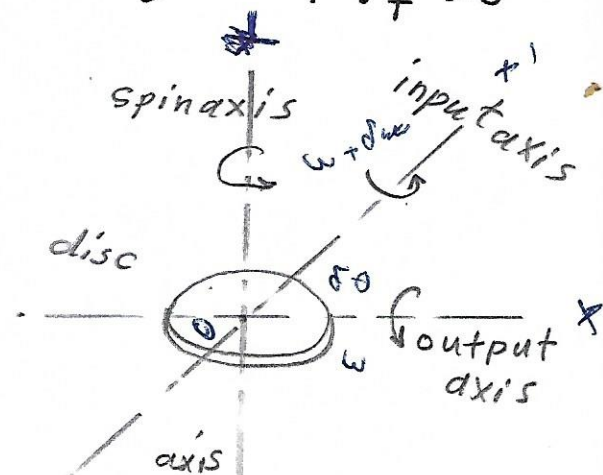 spinaxis
input
axis
ω + δω
disc
δθ
O
ω
output
axis
x
axis